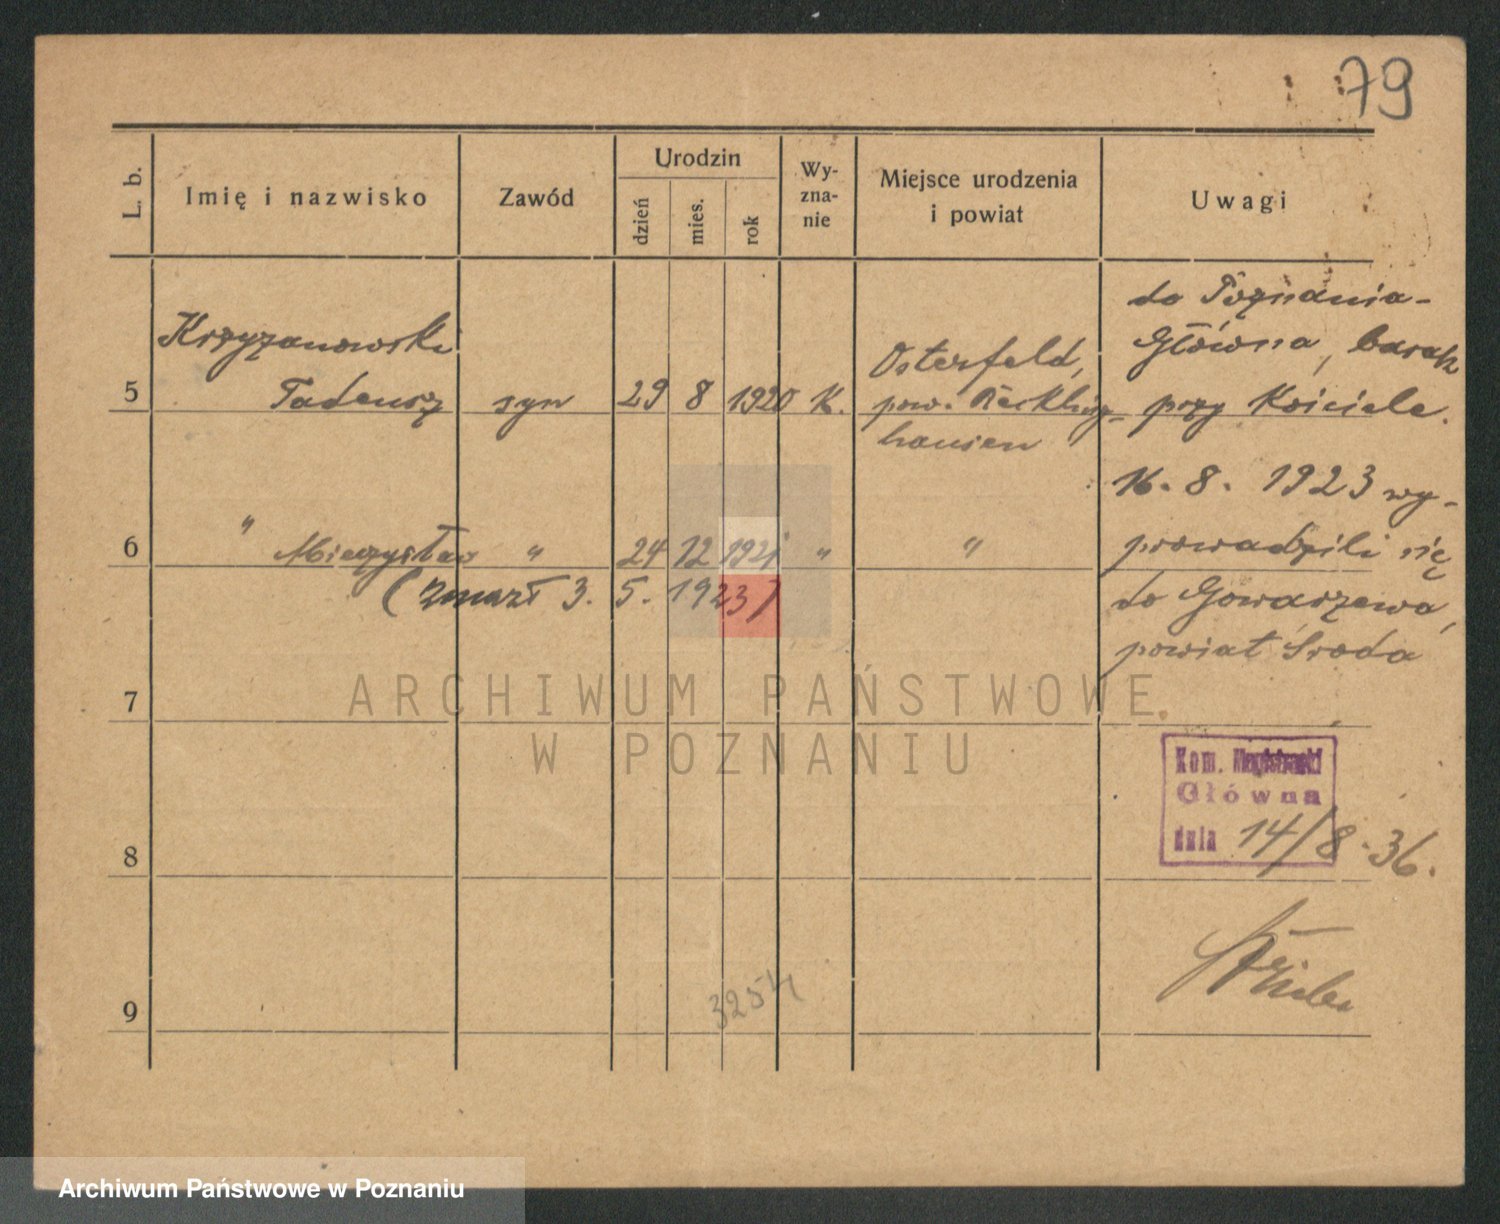 79
L. b.
Imię i nazwisko
Zawód
Urodzin
dzień
mies.
rok
Wy-
zna-
nie
Miejsce urodzenia
i powiat
Uwagi
5
Krzyżanowski
Tadeusz
syn
29
8
1920
K.
Osterfeld,
pow. Reckling-
hausen
do Poznania-
Główna, barak
przy Kościele.
16. 8. 1923 wy-
prowadzili się
do Gowarzewa,
powiat Środa
6
" Mieczysław
"
24
12
1921
"
"
(zmarł 3. 5. 1923)
7
8
9
Kom. Magistracki
Główna
dnia 14/8.36.
3254
ARCHIWUM PAŃSTWOWE
W POZNANIU
Archiwum Państwowe w Poznaniu